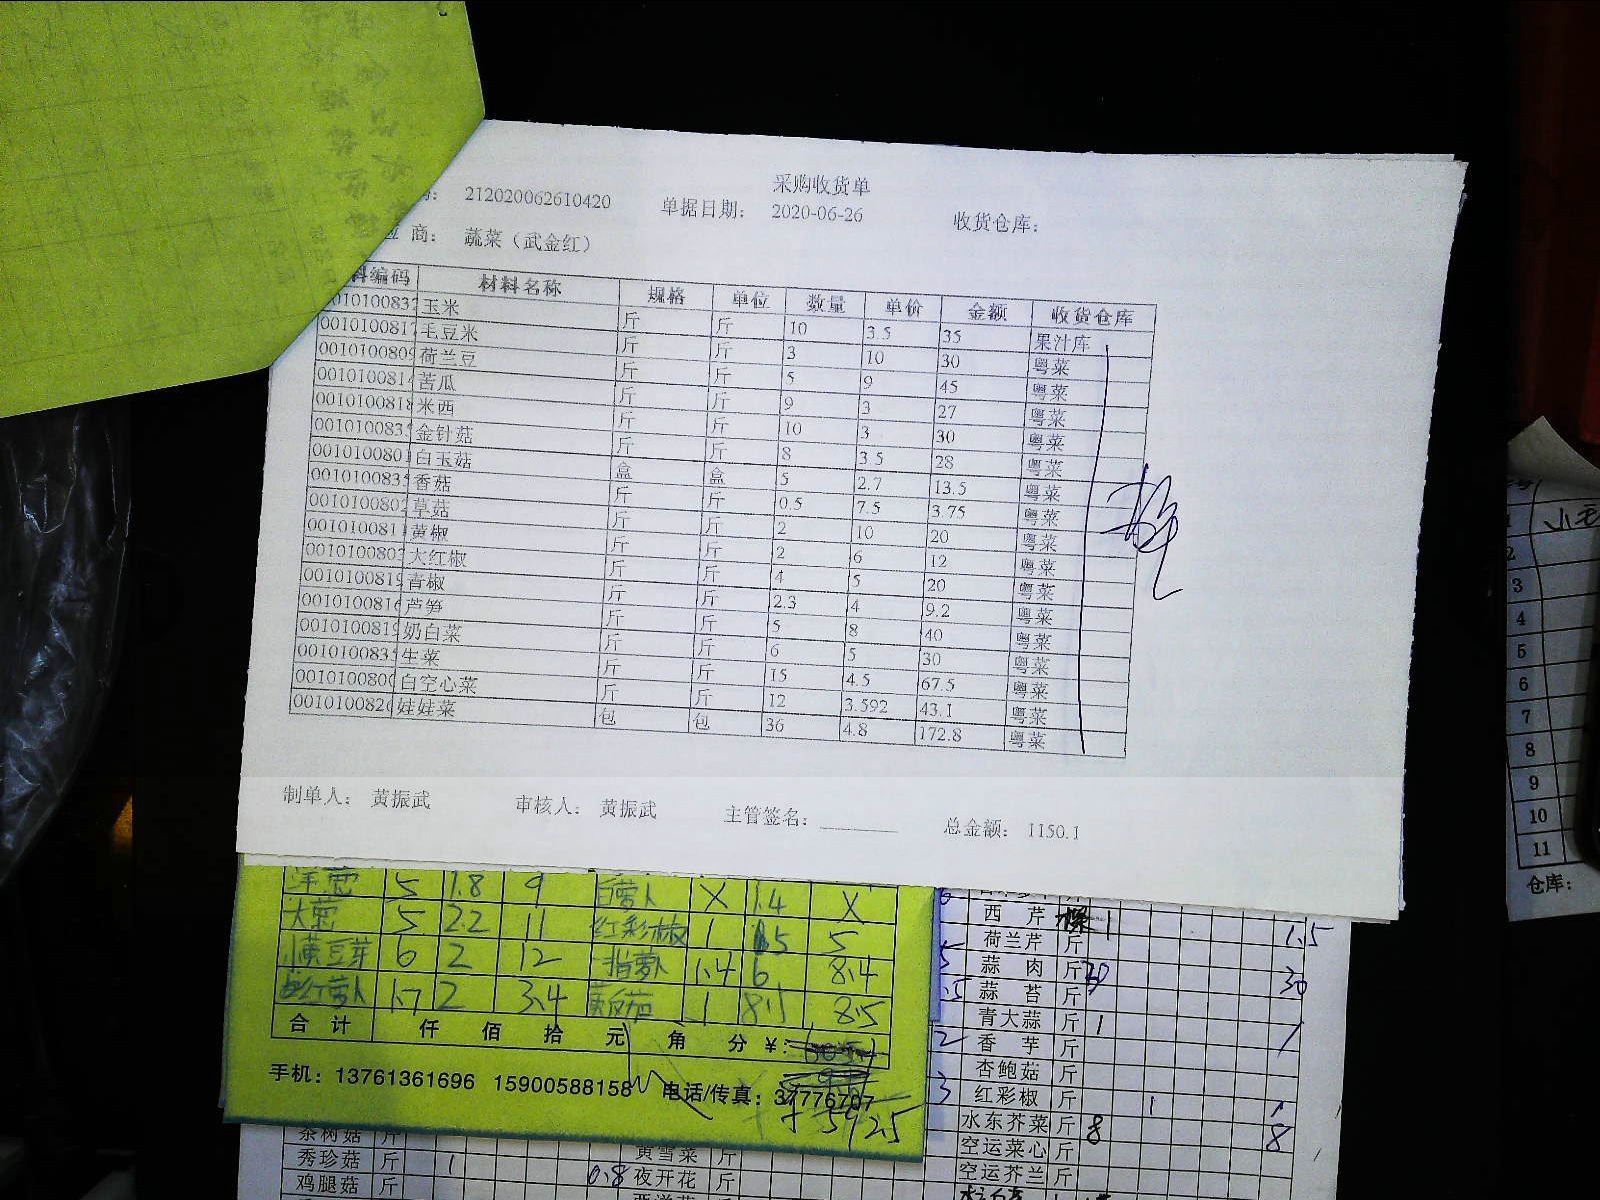 采购收货单
212020062610420 单据日期： 2020-06-26 收货仓库：
商： 蔬菜（武金红）
料编码 材料名称 规格 单位 数量 单价 金额 收货仓库
010100832 玉米 斤 斤 10 3.5 35 果汁库
0010100817 毛豆米 斤 斤 3 10 30 粤菜
0010100809 荷兰豆 斤 斤 5 9 45 粤菜
0010100814 苦瓜 斤 斤 9 3 27 粤菜
0010100818 米西 斤 斤 10 3 30 粤菜
001010083 金针菇 斤 斤 8 3.5 28 粤菜
001010080 白玉菇 盒 盒 5 2.7 13.5 粤菜
001010083 香菇 斤 斤 0.5 7.5 3.75 粤菜
001010080 草菇 斤 斤 2 10 20 粤菜
001010081 黄椒 斤 斤 2 6 12 粤菜
001010080 大红椒 斤 斤 4 5 20 粤菜
001010081 青椒 斤 斤 2.3 4 9.2 粤菜
001010081 芦笋 斤 斤 5 8 40 粤菜
001010081 奶白菜 斤 斤 6 5 30 粤菜
001010083 生菜 斤 斤 15 4.5 67.5 粤菜
001010080 白空心菜 斤 斤 12 3.592 43.1 粤菜
001010082 娃娃菜 包 包 36 4.8 172.8 粤菜
制单人： 黄振武 审核人： 黄振武 主管签名： 总金额： 1150.1
洋葱 5 1.8 9 白萝卜 X 1.4 X
大葱 5 2.2 11 红彩椒 1 5 5
黄豆芽 6 2 12 1.4 6 8.4
红萝卜 1.7 2 3.4 1 8.5 8.5
合计 仟 佰 拾 元 角 分 ¥：
手机：13761361696 15900588158 电话/传真：37776707
592.5
西芹 1 1.5
荷兰芹 斤
蒜肉 斤 20 30
蒜苔 斤
青大蒜 斤 1 1
2 香芋 斤
杏鲍菇 斤
3 红彩椒 斤 1 1
水东芥菜 斤 8 8
空运菜心 斤
空运芥兰 斤
茶树菇 斤 黄雪菜 斤
秀珍菇 斤 1 0.8 夜开花 斤
鸡腿菇 斤
2
3
4
5
6
7
8
9
10
11
仓库：